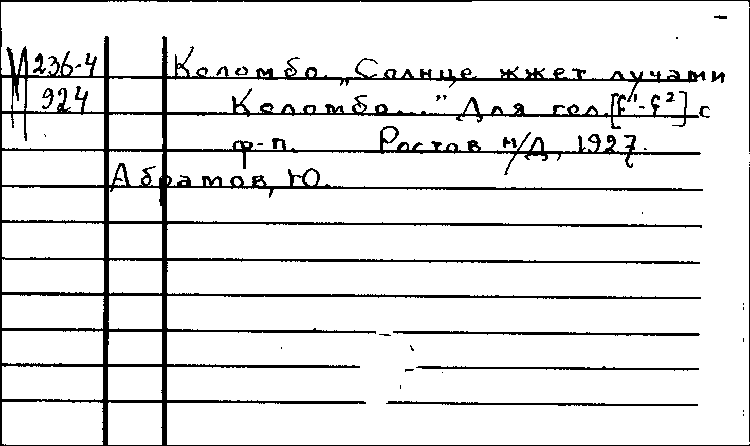 М 236-4 Коломбо. „Солнце жжет лучами
924 Коломбо..." Для гол. [f¹-g²] с
ф-п. Ростов н/Д, 1927.
Абрамов, Ю.